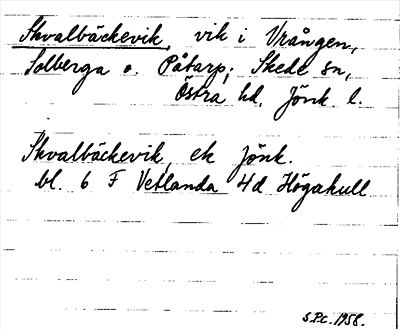 Skvalbäckevik, vik i Vrången,
Solberga o. Påtarp; Skede sn,
Östra hd, Jönk. l.
Skvalbäckevik, ek Jönk.
bl. 6 F Vetlanda 4d Högakull
S.P.c. 1958.